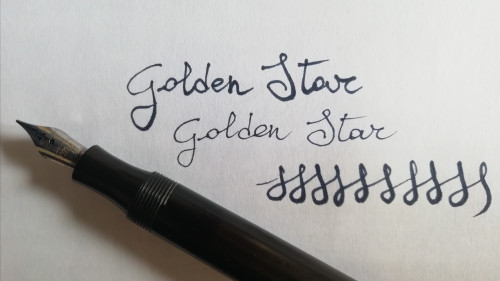 Golden Star
Golden Star